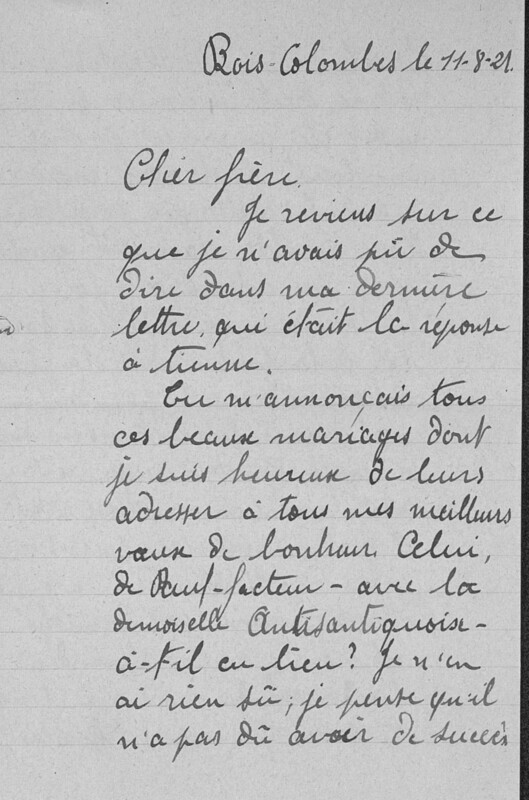 Bois-Colombes le 11-8-21.
Cher frère.
Je reviens sur ce
que je n'avais pû de
dire dans ma dernière
lettre, qui était la réponse
à tienne.
Tu m'annonçais tous
ces beaux mariages dont
je suis heureux de leurs
adresser à tous mes meilleurs
vœux de bonheur. Celui,
de Paul-facteur - avec la
demoiselle
à-t-il eu lieu? Je n'en
ai rien sû; je pense qu'il
n'a pas dû avoir de succès